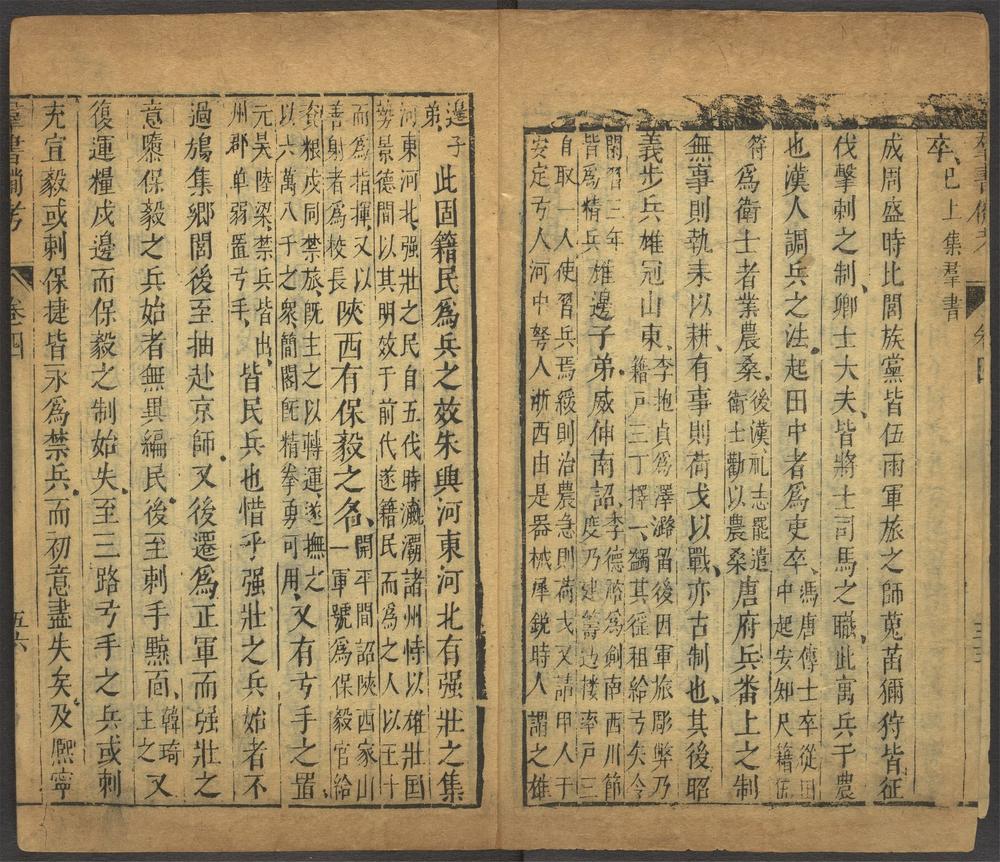 卒、已上集羣書
成周盛時比閭族黨皆伍兩軍旅之師蒐苗獮狩皆征
伐擊刺之制、卿士大夫、皆將士司馬之職、此寓兵于農
也漢人調兵之法起田中者爲吏卒、馮唐傳士卒從田
中起安知尺籍伍
符爲衛士者業農桑、後漢礼志罷遣
衛士勸以農桑唐府兵番上之制
無事則執耒以耕、有事則荷戈以戰、亦古制也、其後昭
義步兵雄冠山東、李抱貞爲澤潞留後因軍旅彫弊乃
籍戸三丁擇一、蠲其徭租給弓矢令
閑習三年
皆爲精兵雄邊子弟威伸南詔、李德裕爲劍南西川節
度乃建籌边楼率戸三
自取一人使習兵焉緩則治農急則荷戈又請甲人于
安定弓人河中弩人浙西由是器械犀鋭時人謂之雄
邊子
弟、此固籍民爲兵之效朱興河東河北有强壯之集
河東河北、强壯之民自五伐時瀛灞諸州恃以雄壯国
勢景德間以其明效于前代遂籍民而爲之人以五十
而爲指揮、又以
善射者爲校長陜西有保毅之名、開平間詔陜西家山
一軍號爲保毅官給
資粮戍同禁旅、旣主之以轉運、遂撫之
以六萬八千之衆、簡閣旣精拳勇可用、又有弓手之置
元昊陸梁、禁兵皆出、
州郡单弱置弓手、皆民兵也惜乎强壯之兵始者不
過旃集鄉閭後至抽赴京師、又後遷爲正軍而强壯之
意隳保毅之兵始者無異編民、後至刺手黥面、韓琦
主之又
復運糧戍邊而保毅之制始失、至三路弓手之兵或刺
充宣毅或刺保捷皆永爲禁兵、而初意盡失矣及熈寧
羣書備考
卷四
五六